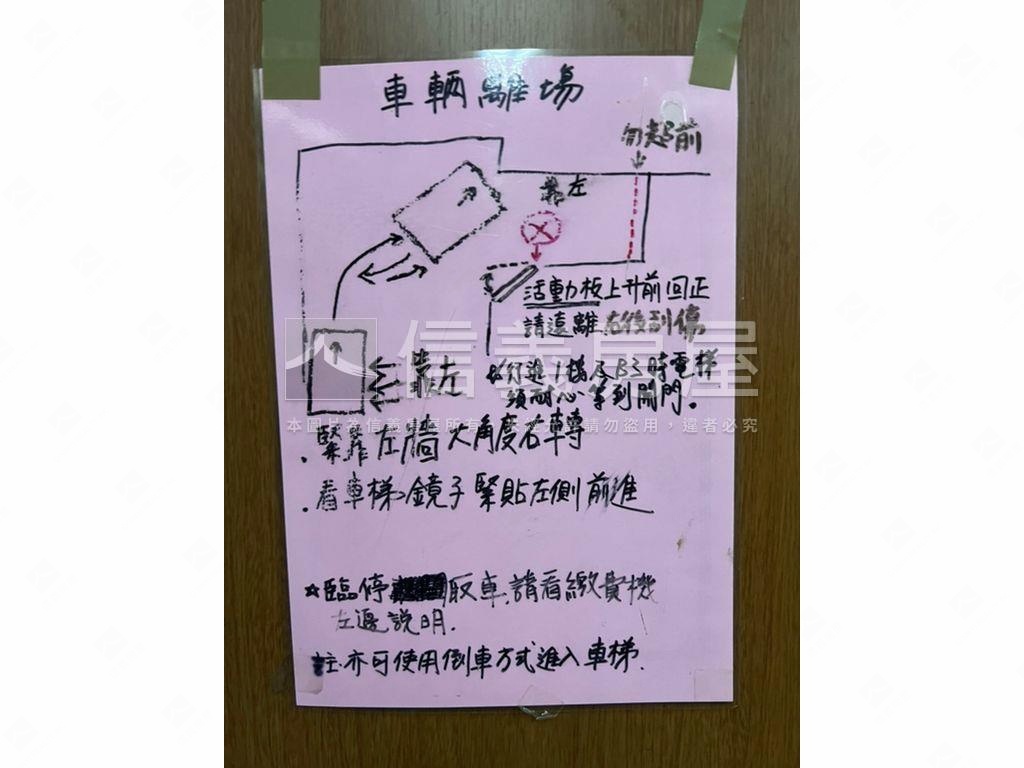 車輛離場
勿超前
靠左
活動板上升前回正
請遠離 右後到停
行進1樓及B3時電梯
須耐心等到開門.
靠左
信義房屋
本圖片為信義房屋所有,未經允許請勿盜用,違者必究
.緊靠左牆大角度右轉
.看車梯鏡子緊貼左側前進
☆臨停 取車.請看繳費機
左邊說明.
註:亦可使用倒車方式進入車梯.